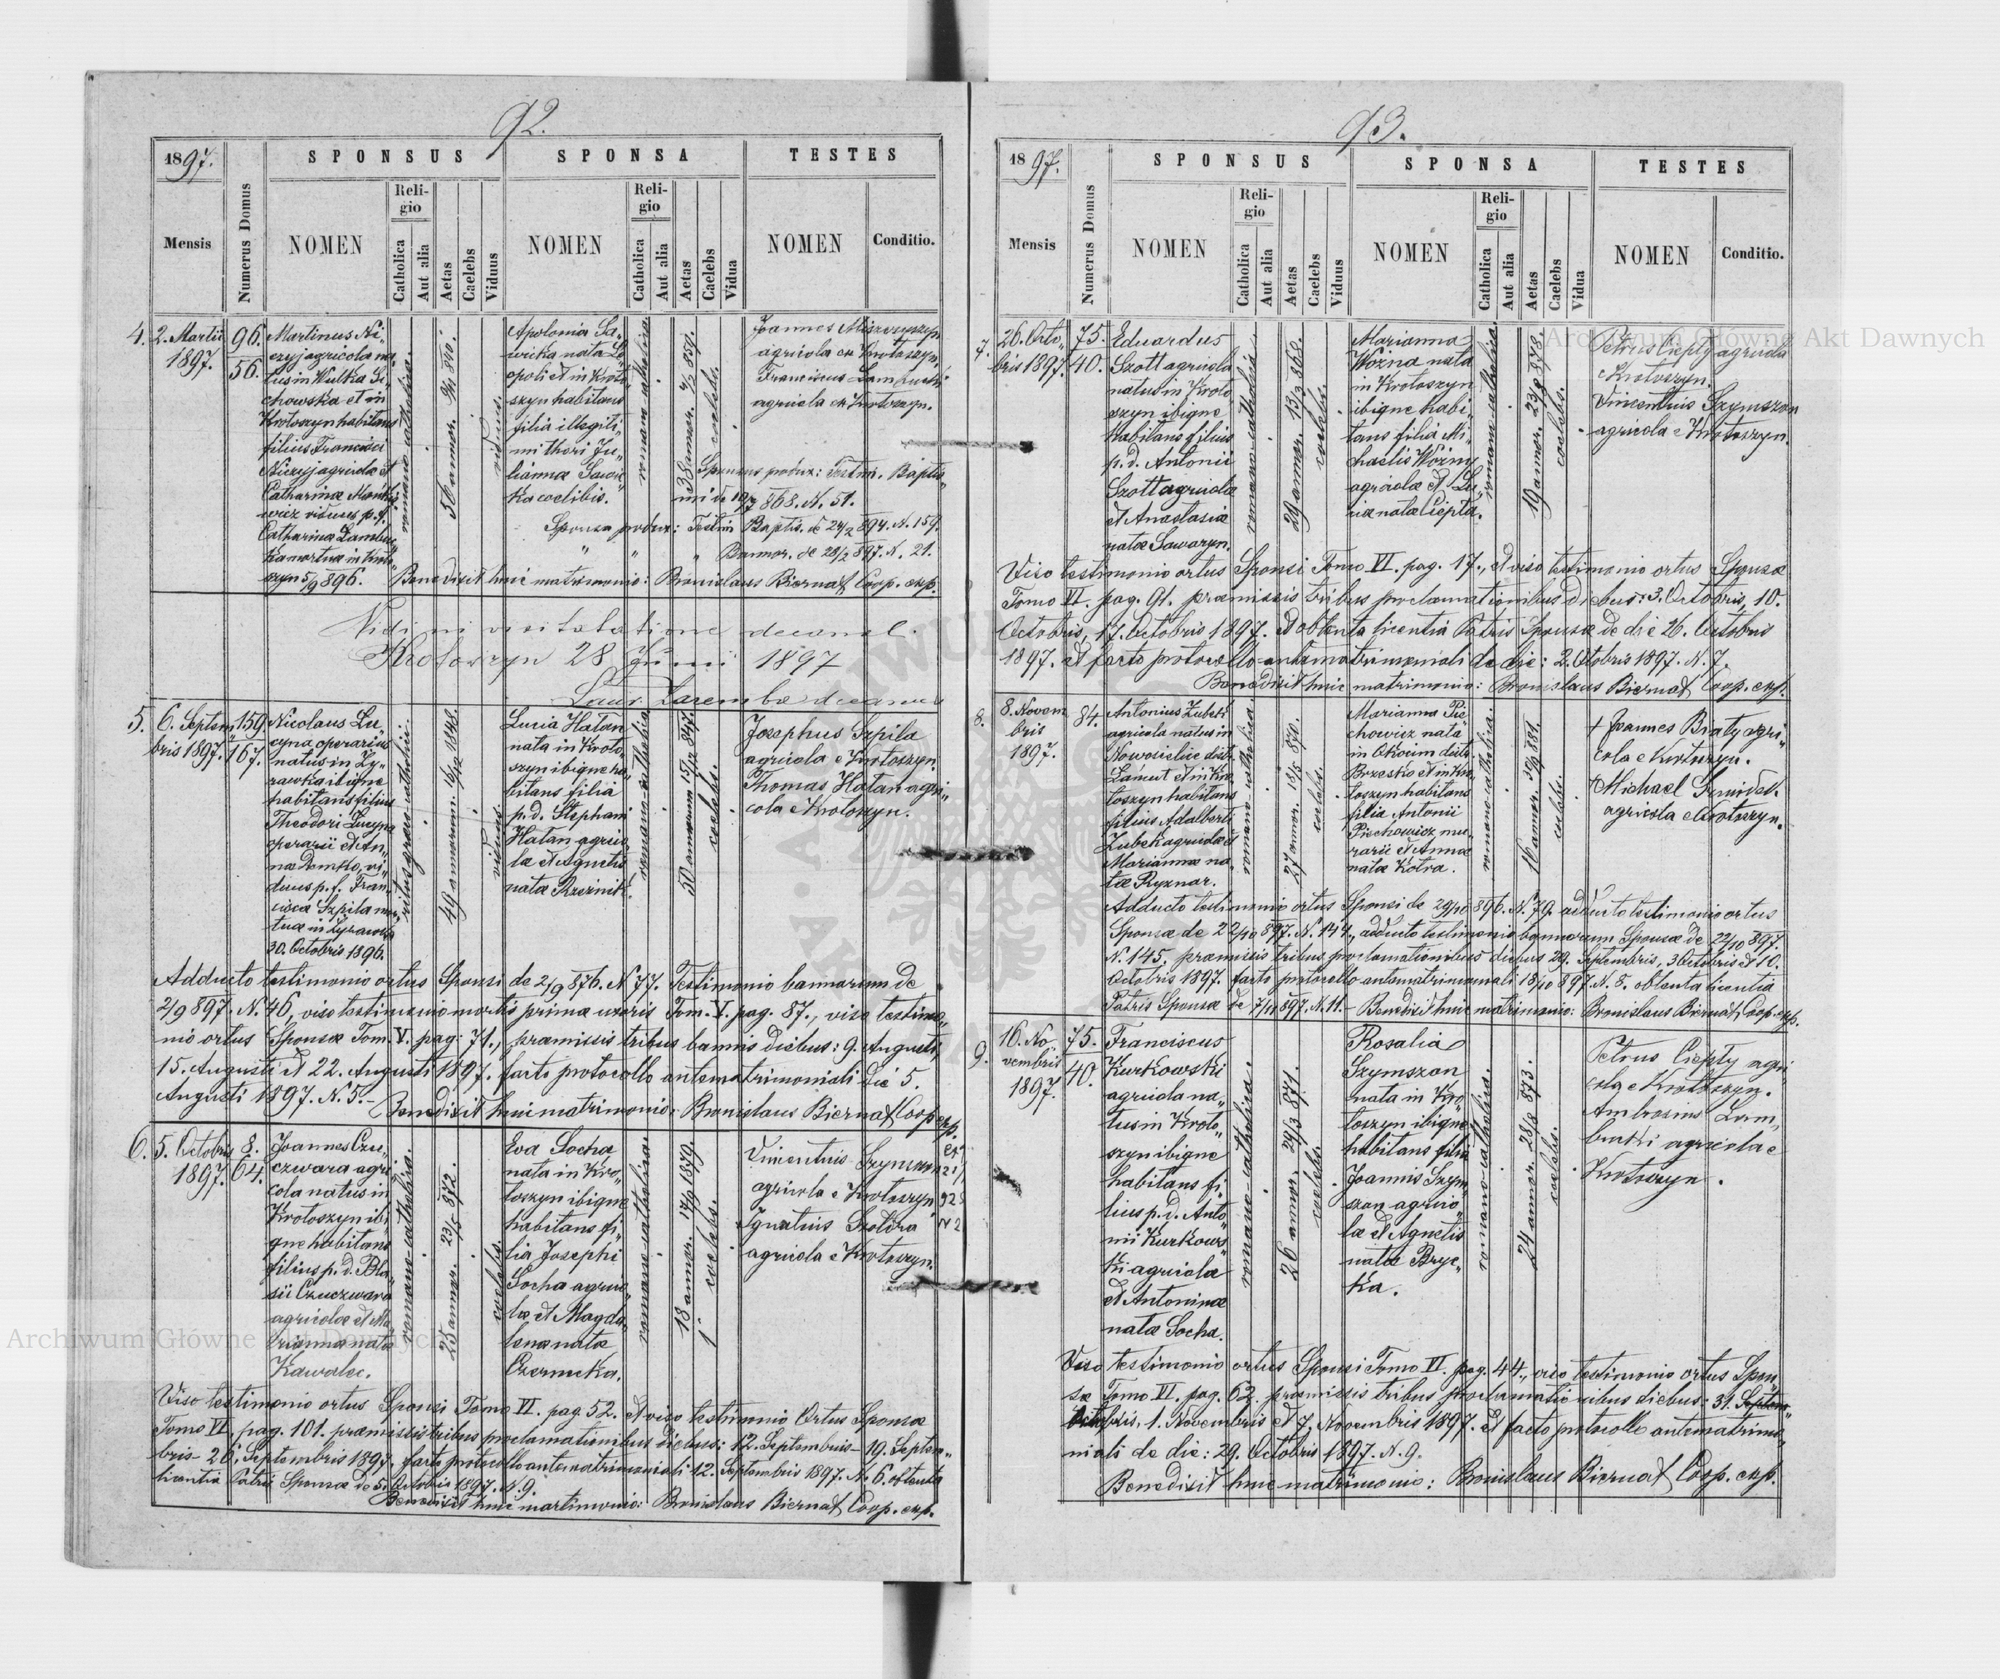 92.
1897.
SPONSUS
SPONSA
TESTES
Mensis
Numerus Domus
NOMEN
Religio
Catholica
Aut alia
Aetas
Caelebs
Viduus
NOMEN
Religio
Catholica
Aut alia
Aetas
Caelebs
Vidua
NOMEN
Conditio.
4.
2. Martii
1897.
96.
56.
Martinus Ni-
czyj agricola na
tus in Wulka
chowska et in
Krotoszyn habitans
filius Francisci
Niczyj agricolæ et
Catharinæ
viduus p. f.
Catharinæ
mortuæ in Kroto
szyn 5/9 896.
romano catholica.
viduus.
Apolonia Sa-
wicka nata
et in Kroto
szyn habitans
filia illegiti-
mi thori Ju-
liannæ Sawic-
ka coelibis.
romano catholica
coelebs.
Joannes
agricola ex Krotoszyn.
Franciscus
agricola ex Krotoszyn.
Sponsus produx: Testm. Baptis-
mi de 868. N. 51.
Sponsa produx: Testm Baptis. de 24/2 894. N. 159.
" " " Bannor. de 28/2 897. N. 21.
Benedixit huic matrimonio: Bronislaus Biernat Coop. exp.
Vidi in visitatione decanal.
Krotoszyn 28 Junii 1897
Zaremba decanus
5.
6. Septem-
bris 1897.
159.
167.
Nicolaus Lu-
cyna operarius
natus in Ży-
rawka ibique
habitans filius
Theodori Lucyna
operarii et An-
næ Demko, vi-
duus p. f. Fran-
ciscæ Szpila mor
tuæ in Żyrawka
30. Octobris 1896.
ritus græco catholici.
49 annorum.
viduus
Lucia Hatan
nata in Kroto
szyn ibique ha
bitans filia
p. d. Stephani
Hatan agrico
læ et Agnetis
natæ Rzeźnik.
romano catholica
50 annorum
coelebs.
Josephus Szpila
agricola e Krotoszyn.
Thomas Hatan agri-
cola e Krotoszyn.
Adducto testimonio ortus Sponsi de 2/9 876. N 77. Testimonio bannorum de
2/9 897. N. 46, viso testimonio mortis primæ uxoris Tom. V. pag. 87., viso testimo-
nio ortus Sponsæ Tom. V. pag: 71., præmissis tribus bannis diebus: 9. Augusti
15. Augusti et 22. Augusti 1897. facto protocollo antematrimoniali die 5.
Augusti 1897. N. 5.- Benedixit huic matrimonio: Bronislaus Biernat Coop. exp.
6.
5. Octobris
1897.
8.
64.
Joannes Czu-
czwara agri
cola natus in
Krotoszyn ibi
que habitans
filius p. d. Bla-
sii Czuczwara
agricolæ et Ma
rianna nata
Kawalec.
romano catholica.
25 annor. 23/5 872.
coelebs.
Eva Socha
nata in Kro-
toszyn ibique
habitans fi-
lia Josephi
Socha agrico-
læ et Magda
lenæ natæ
Czernicka.
romano catholica
18 annor. 1879.
coelebs.
Vincentius Szymszon
agricola e Krotoszyn
Ignatius
agricola e Krotoszyn.
Viso testimonio ortus Sponsi Tomo VI. pag 52. et viso testimonio Ortus Sponsæ
Tomo VI. pag. 101. præmissis tribus proclamationibus diebus: 12. Septembris- 19. Septem-
bris- 26. Septembris 1897. facto protocollo antematrimoniali 12. Septembris 1897. N. 6. obtenta
licentia Patris Sponsæ de 5. Octobris 1897.
Benedixit huic martimonio: Bronislaus Biernat Coop. exp.
93.
1897.
SPONSUS
SPONSA
TESTES
Mensis
Numerus Domus
NOMEN
Religio
Catholica
Aut alia
Aetas
Caelebs
Viduus
NOMEN
Religio
Catholica
Aut alia
Aetas
Caelebs
Vidua
NOMEN
Conditio.
7.
26. Octo-
bris 1897.
75.
40.
Eduardus
Szott agricola
natus in Kroto
szyn ibique
habitans filius
p. d. Antonii
Szott agricolæ
et Anastasiæ
natæ Sawaryn.
romano-catholica
29 annor. 13/3 868.
coelebs.
Marianna
Woźna nata
in Krotoszyn
ibique habi-
tans filia Mi-
chaelis Woźny
agricolæ et Lu-
ciæ nata Ciepła.
romano catholica.
19 annor. 23/8 878.
coelebs.
Petrus Ciepły agricola
e Krotoszyn.
Vincentius Szymszon
agricola e Krotoszyn.
Viso testimonio ortus Sponsi Tomo VI. pag. 17., et viso testimonio ortus Sponsæ
Tomo VI. pag. 91. præmissis tribus proclamationibus diebus: 3. Octobris, 10.
Octobris, 17. Octobris 1897. et obtenta licentia Patris Sponsæ de die 26. Octobris
1897. et facto protocollo antematrimoniali de die: 2. Octobris 1897. N. 7.
Benedixit huic matrimonio: Bronislaus Biernat Coop. exp.
8.
8. Novem
bris
1897.
84.
Antonius Zubek
agricola natus in
Nowosielce distr.
Łańcut et in Kro
toszyn habitans
filius Adalberti
Zubek agricolæ et
Mariannæ na
tæ Ryznar.
romano catholica.
27 annor. 18/5 870.
coelebs.
Marianna Pie
chowicz nata
in Okocim distr.
Brzesko et in Kro
toszyn habitans
filia Antonii
Piechowicz mu
rarii et Annæ
natæ Kotra.
romano catholica.
16 annor. 881.
coelebs.
+ Joannes Biały agri-
cola e Krotoszyn.
+ Michael
agricola e Krotoszyn.
Adducto testimonio ortus Sponsi de 29/10 896. N. 79. adducto testimonio ortus
Sponsæ de 22/10 897. N. 144., adducto testimonio bannorum Sponsæ de 22/10 897.
N. 145. præmissis tribus proclamationibus diebus 29. Septembris, 3 Octobris et 10.
Octobris 1897. facto protocollo antematrimoniali 18/10 897 N. 8. obtenta licentia
Patris Sponsæ de 7/11 897. N. 11.- Benedixit huic matrimonio: Bronislaus Biernat Coop. exp.
9.
16. No-
vembris
1897.
75.
40.
Franciscus
Kurkowski
agricola na-
tus in Kroto-
szyn ibique
habitans fi-
lius p. d. Anto
nii Kurkows-
ki agricola
et Antoninæ
natæ Socha.
romano-catholica.
26 annor. 29/3 871.
coelebs.
Rosalia
Szymszon
nata in Kro-
toszyn ibique
habitans filia
Joannis Szym
szon agrico-
læ et Agnetis
natæ Bryc-
ka.
romano catholica.
24 annor. 28/8 873.
coelebs.
Petrus Ciepły agri-
cola e Krotoszyn.
Ambrosius
agricola e
Krotoszyn.
Viso testimonio ortus Sponsi Tomo VI. pag. 44., viso testimonio ortus Spon-
sæ Tomo VI. pag. 62. præmissis tribus proclamationibus diebus: 31.
Octobris, 1. Novembris et 7. Novembris 1897. et facto protocollo antematrimo-
niali de die: 29. Octobris 1897. N. 9.
Benedixit huic matrimonio: Bronislaus Biernat Coop. exp.
Archiwum Główne Akt Dawnych
Archiwum Główne Akt Dawnych